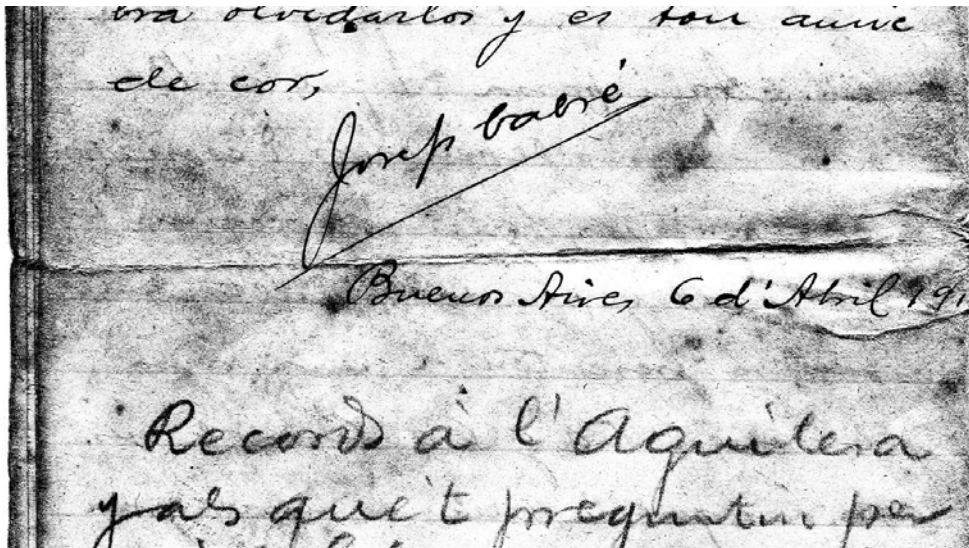 bra olvidarlos y es ton amic
de cor,
Josep Cabré
Buenos Aires 6 d'Abril 191
Records à l'Aguilera
y als que't preguntin per